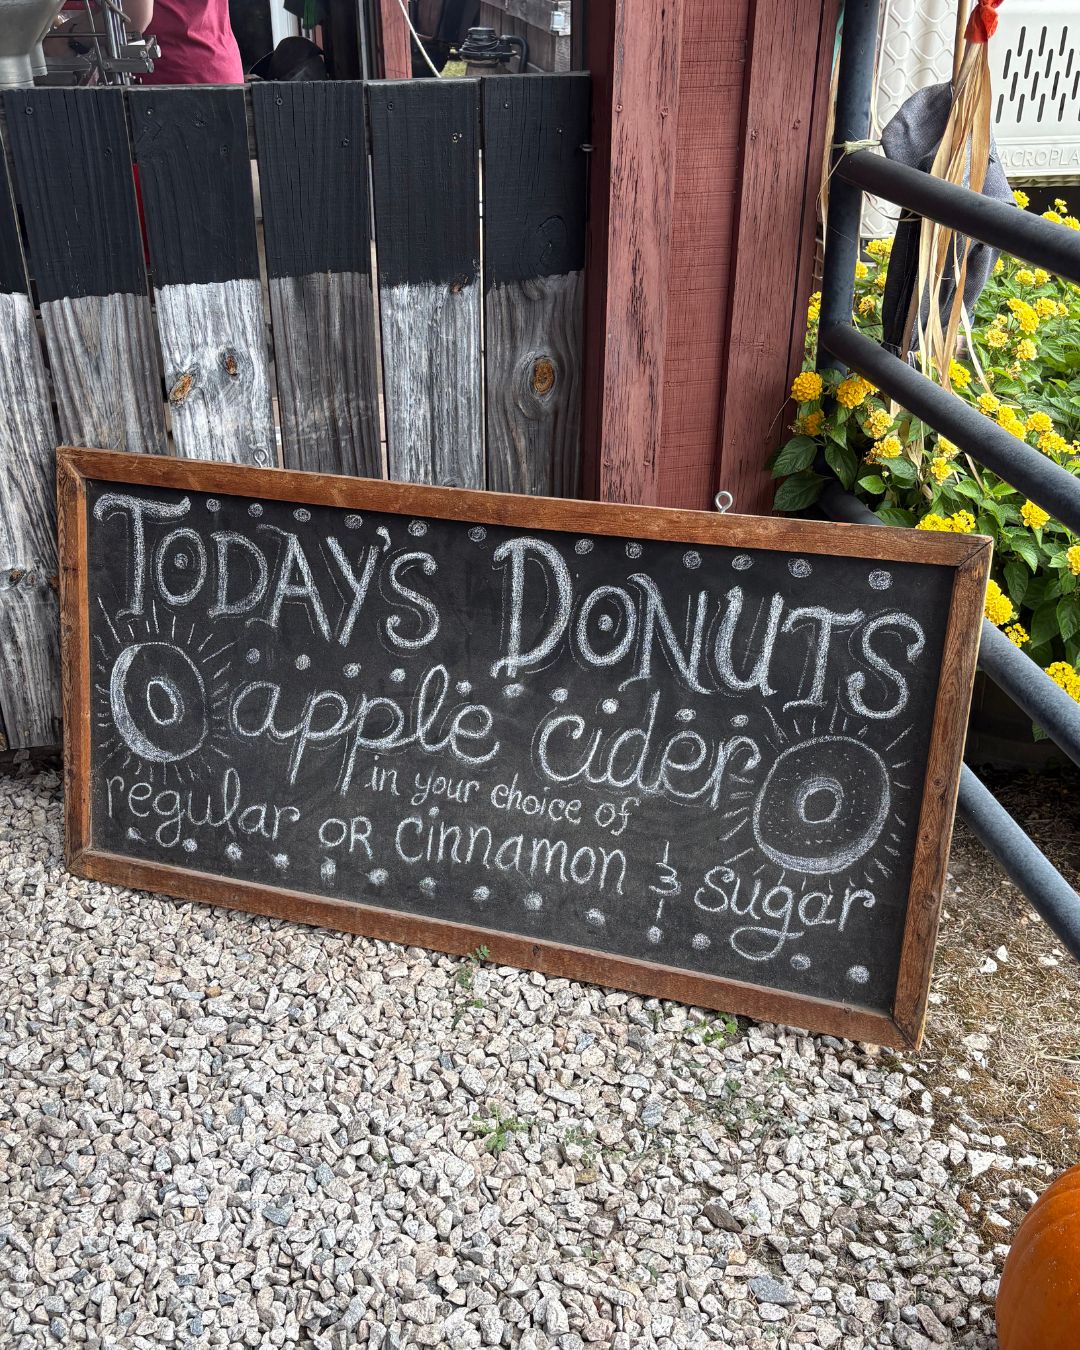 TODAY'S DONUTS
apple cider
in your choice of
regular OR cinnamon & sugar